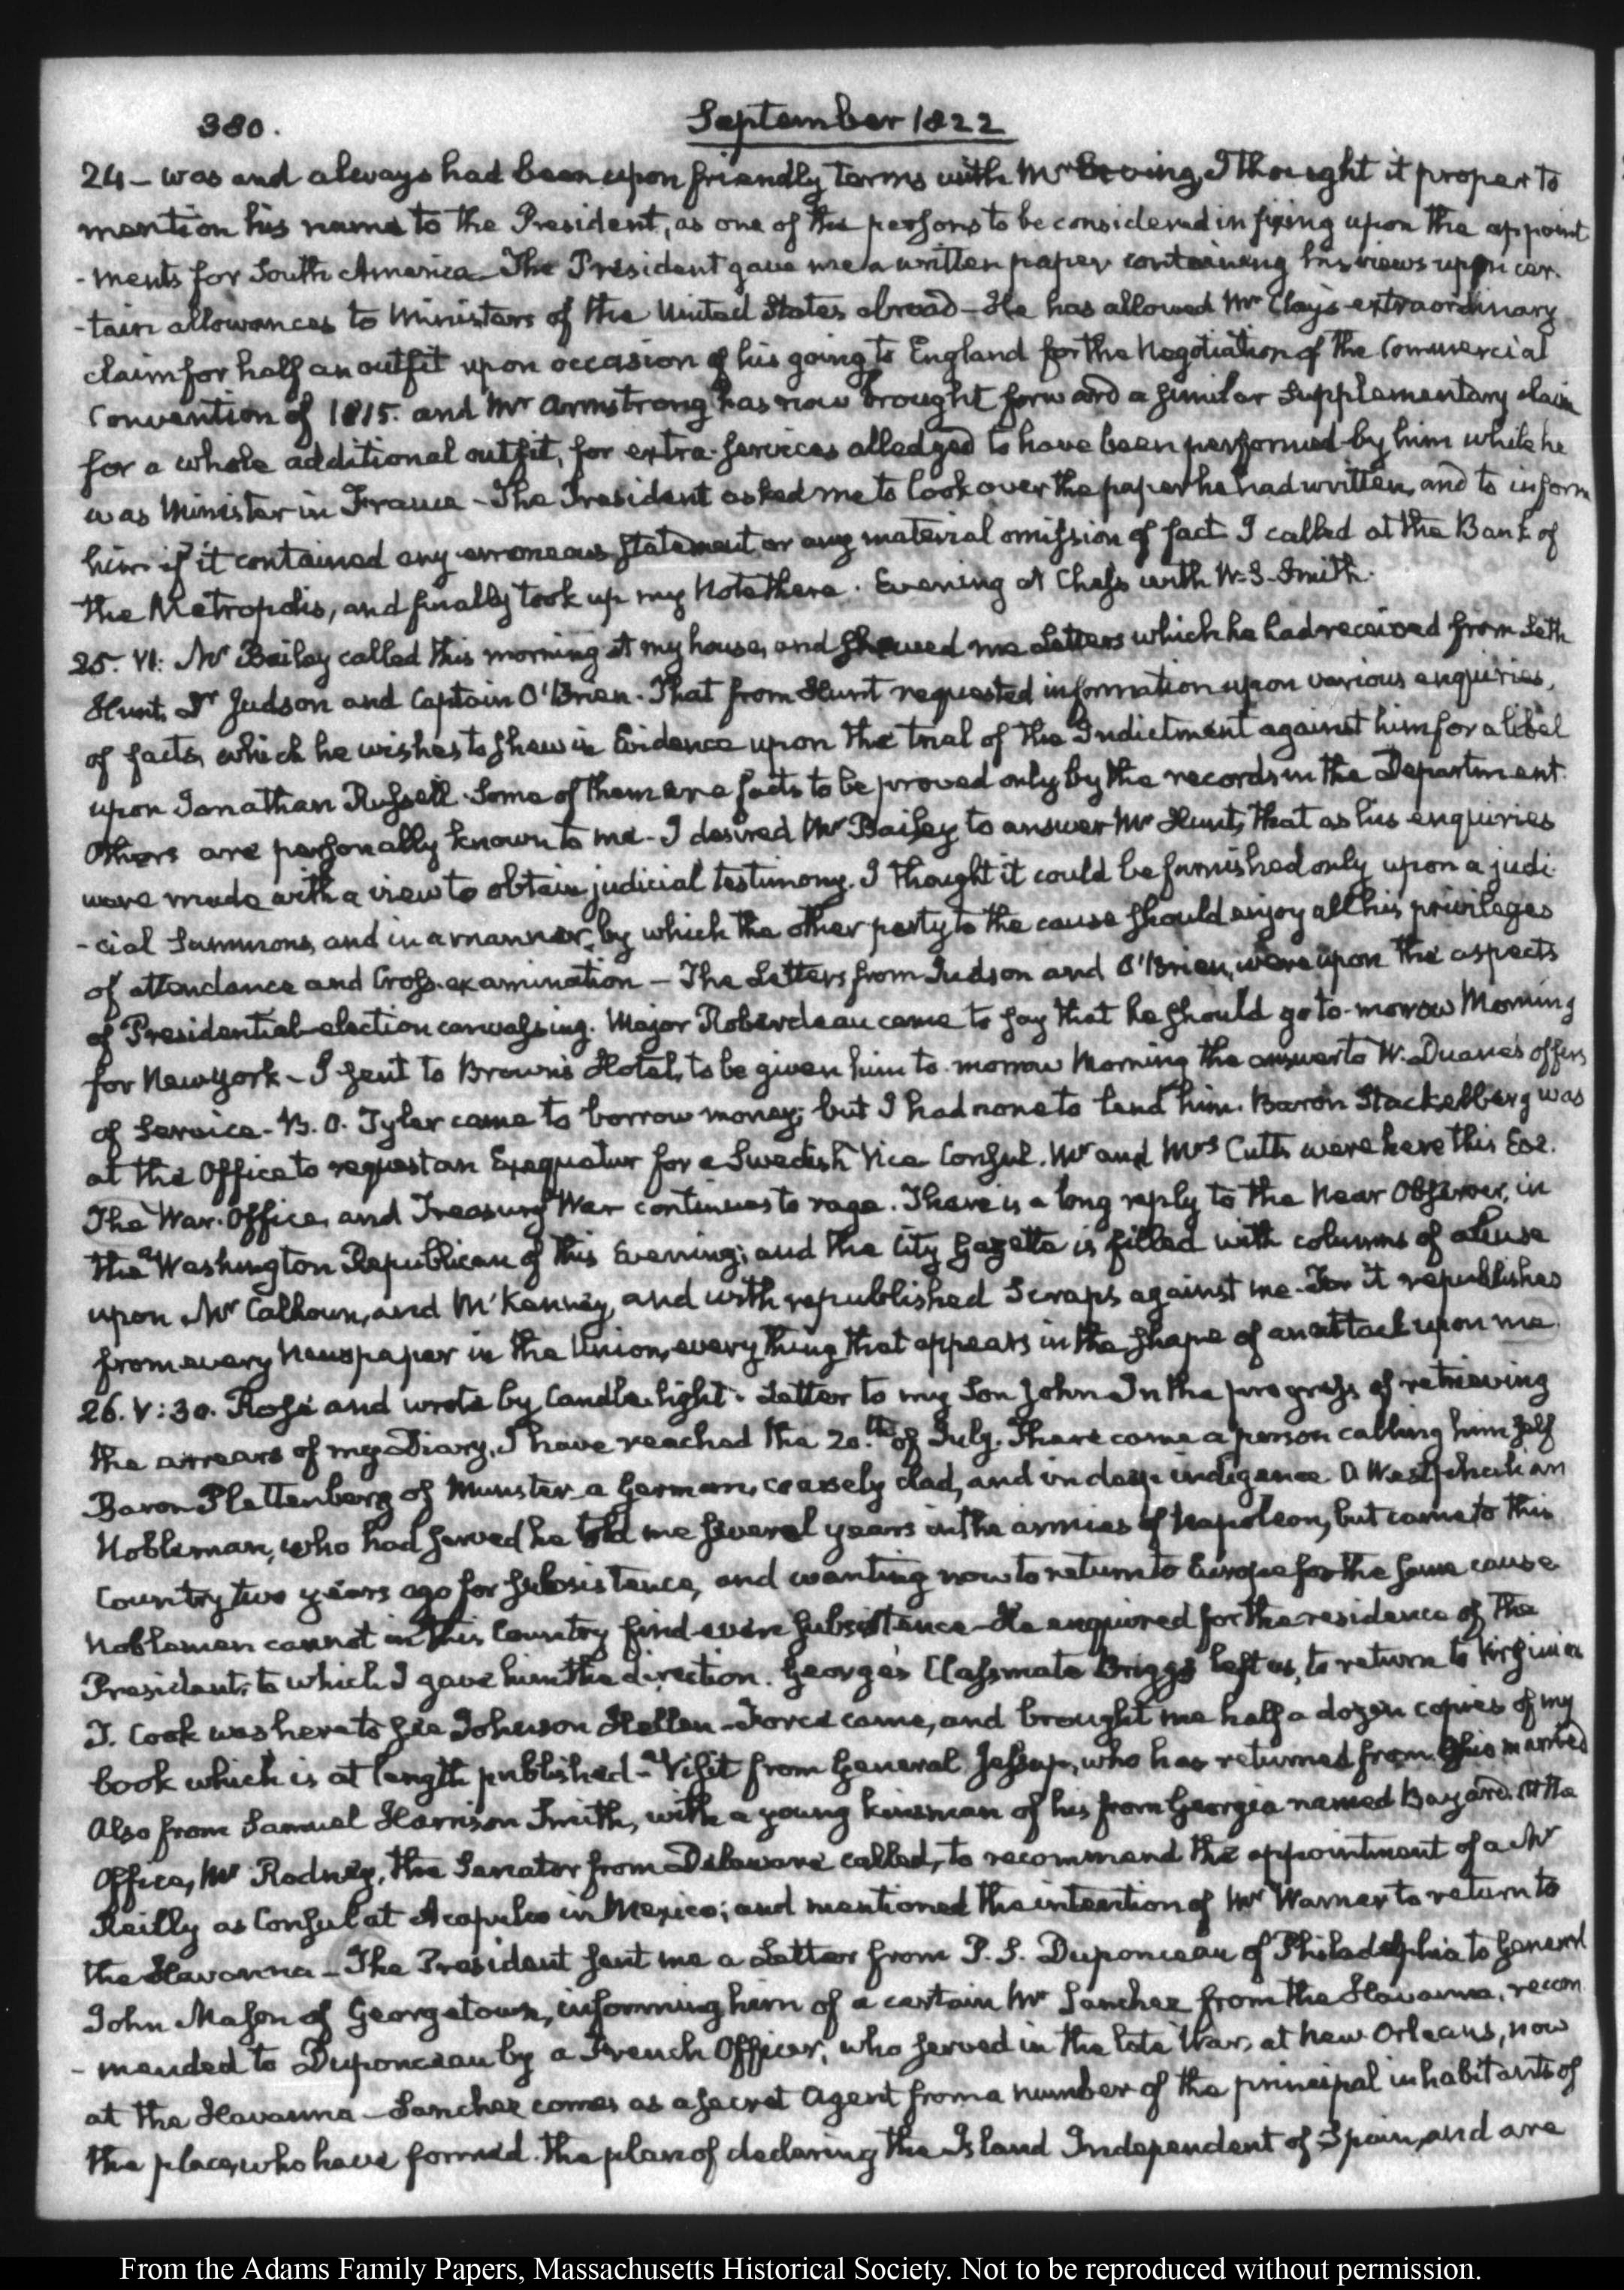 380.
September 1822
24 – was and always had been upon friendly terms with Mr Erving, I thought it proper to
mention his name to the President, as one of the persons to be considered in fixing upon the appoint
-ments for South America – The President gave me a written paper containing his views upon cer-
-tain allowances to Ministers of the United States abroad – He has allowed Mr Clay's extraordinary
claim for half an outfit upon occasion of his going to England for the Negotiation of the Commercial
Convention of 1815. and Mr Armstrong has now brought forward a similar Supplementary claim
for a whole additional outfit, for extra-services alledged to have been performed by him while he
was Minister in France – The President asked me to look over the paper he had written, and to inform
him if it contained any erroneous statement or any material omission of fact. I called at the Bank of
the Metropolis, and finally took up my Note there. Evening at Chess with W. S. Smith.
25. VI: Mr Bailey called this morning at my house, and shewed me Letters which he had received from Seth
Hunt, Dr Judson and Captain O'Brien. That from Hunt requested information upon various enquiries,
of facts, which he wishes to shew in Evidence upon the trial of the Indictment against him for a libel
upon Jonathan Russell. Some of them are facts to be proved only by the records in the Department.
Others are personally known to me – I desired Mr Bailey to answer Mr Hunt, that as his enquiries
were made with a view to obtain judicial testimony. I thought it could be furnished only upon a judi
-cial Summons, and in a manner, by which the other party to the cause should enjoy all his privileges
of attendance and Cross-examination – The Letters from Judson and O'Brien, were upon the aspects
of Presidential-election canvassing. Major Roberdeau came to say that he should go to-morrow Morning
for New York – I sent to Brown's Hotel, to be given him to-morrow Morning the answer to W. Duane's offers
of Service – B. O. Tyler came to borrow money; but I had none to lend him. Baron Stackelberg was
at the Office to request an Exequatur for a Swedish Vice Consul. Mr and Mrs Cutts were here this Eve.
The War-Office, and Treasury War continues to rage. There is a long reply to the Near Observer, in
the Washington Republican of this Evening; and the City Gazette is filled with columns of abuse
upon Mr Calhoun, and McKenney, and with republished Scraps against me. For it republishes
from every Newspaper in the Union, every thing that appears in the shape of an attack upon me.
26. V: 30. Rose and wrote by Candle-light. Letter to my Son John – In the progress of retrieving
the arrears of my Diary, I have reached the 20.th of July. There came a person calling himself
Baron Plettenberg of Munster a German, coarsely clad, and in deep indigence. A Westphalian
Nobleman, who had served he told me several years in the armies of Napoleon, but came to this
Country two years ago for subsistence, and wanting now to return to Europe for the same cause.
Noblemen cannot in this Country find even subsistence – He enquired for the residence of the
President; to which I gave him the direction. George's Classmate Briggs left us, to return to Virginia
J. Cook was here to see Johnson Hellen – Force came, and brought me half a dozen copies of my
book which is at length published – Visit from General Jessup, who has returned from Ohio married
Also from Samuel Harrison Smith, with a young kinsman of his from Georgia named Bayard. At the
Office, Mr Rodney, the Senator from Delaware called, to recommend the appointment of a Mr
Reilly as Consul at Acapulco in Mexico; and mentioned the intention of Mr Warner to return to
the Havanna – The President sent me a Letter from P. S. Duponceau of Philadelphia to General
John Mason of Georgetown, informing him of a certain Mr Sanchez from the Havanna, recom
-mended to Duponceau by a French Officer, who served in the late War, at New-Orleans, now
at the Havanna – Sanchez comes as a secret Agent from a number of the principal inhabitants of
the place, who have formed the plan of declaring the Island Independent of Spain, and are
From the Adams Family Papers, Massachusetts Historical Society. Not to be reproduced without permission.